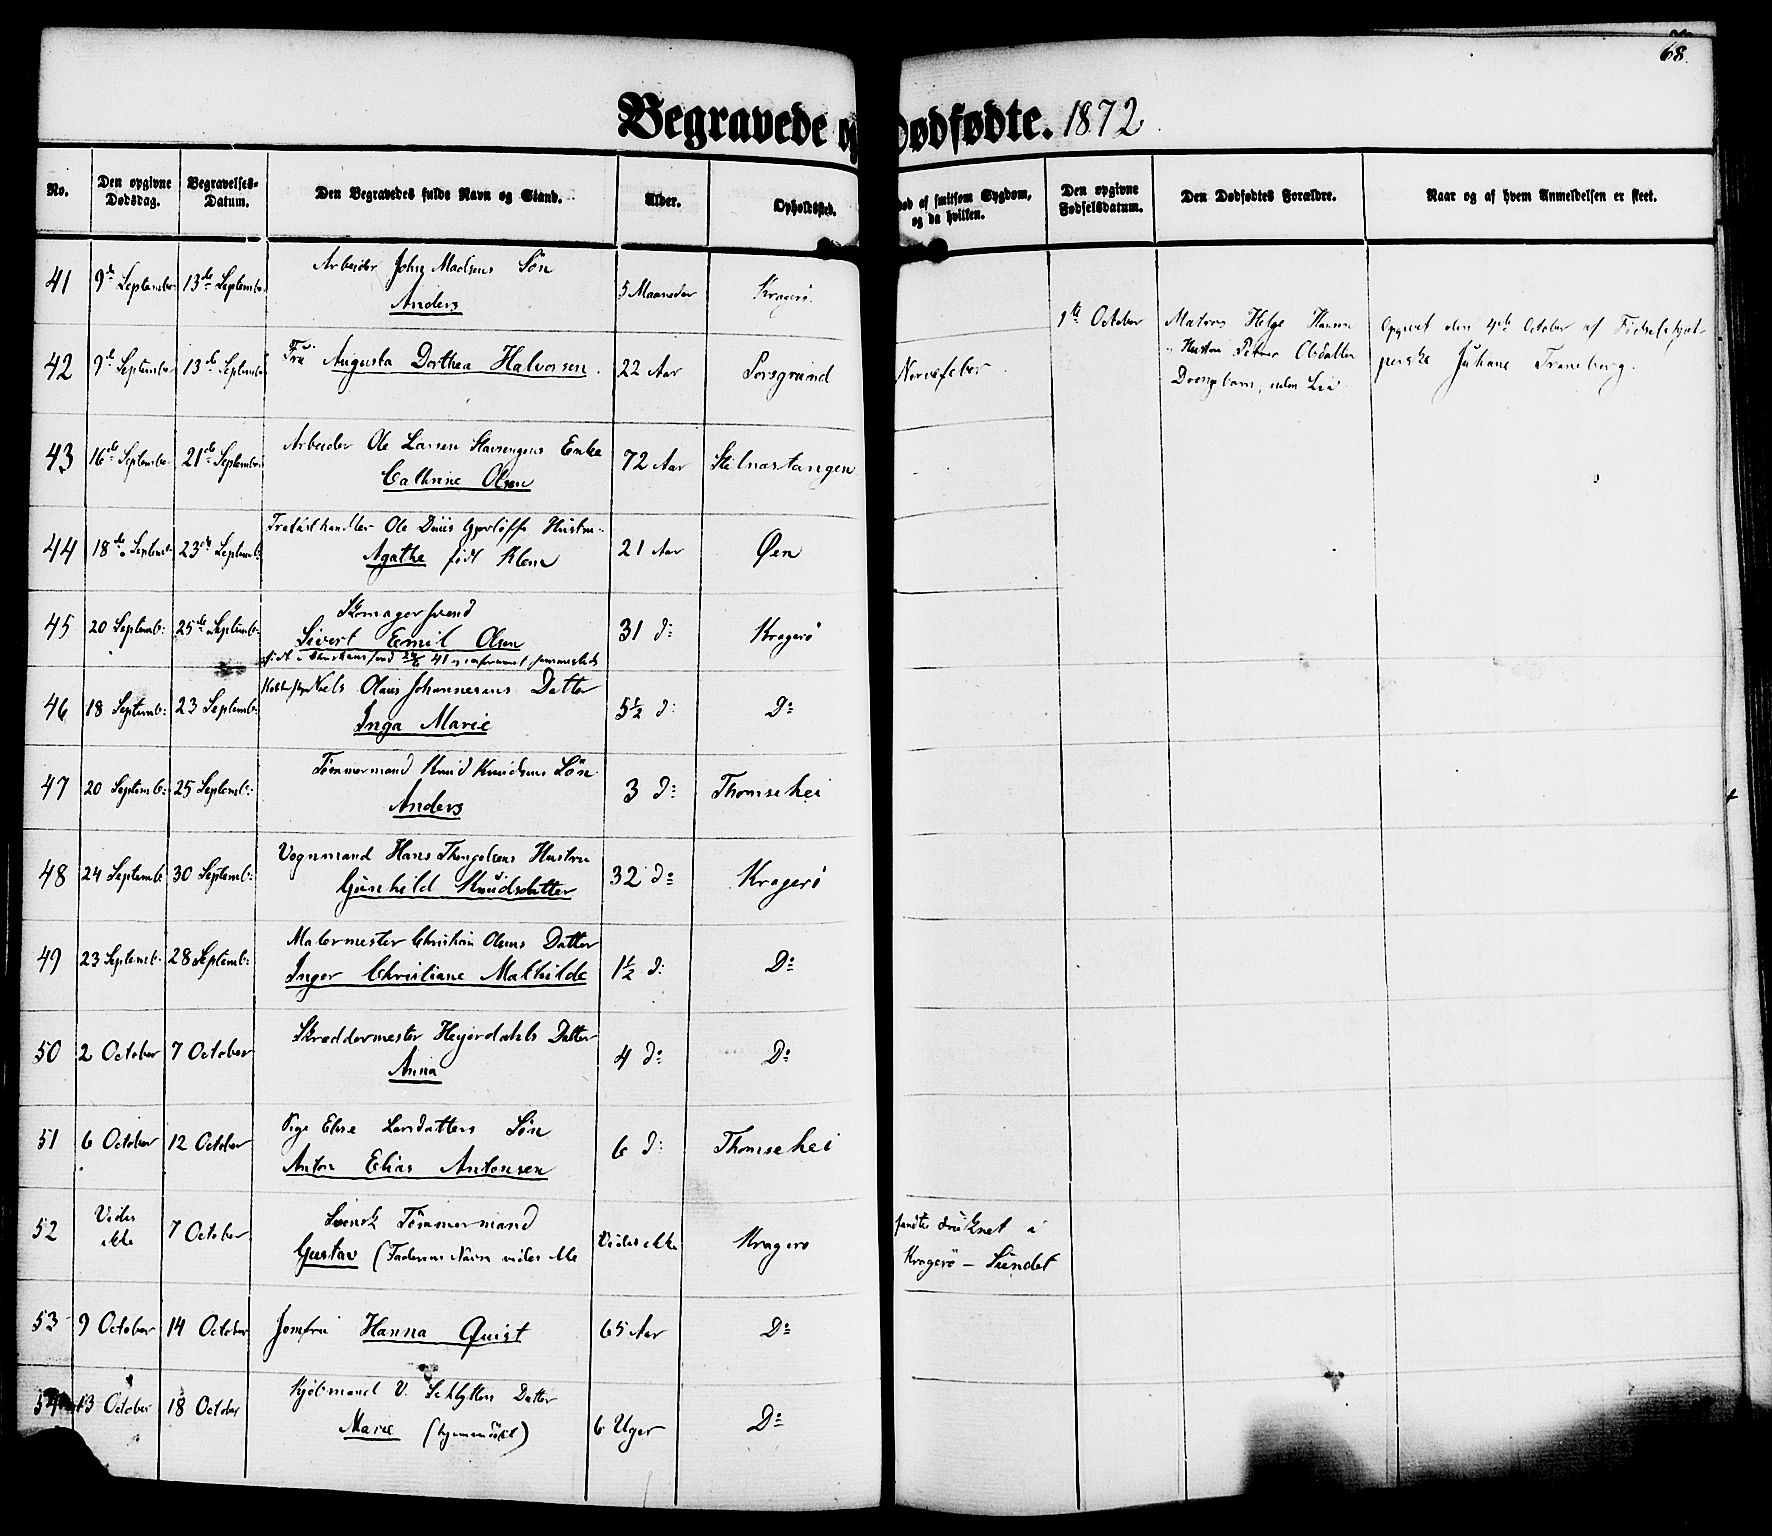 68.
Begravede og Dødfødte. 1872
No.
Den opgivne Dødsdag.
Begravelses-Datum.
Den Begravedes fulde Navn og Stand.
Alder.
Opholdssted.
død af smitsom Sygdom, og da hvilken.
Den opgivne Fødselsdatum.
Den Dødfødtes Forældre.
Naar og af hvem Anmeldelsen er skeet.
41 9de September 13de September Arbeider John Madsens Søn
Anders 5 Maaneder Kragerø
1ste October Matros Helge Hansen
Hustru Petrea Olsdatter
Drengebarn, uden Liv
Opgivet den 4de October af
Juhane Traneberg.
42 9de September 13de September Fru Augusta Dorthea Halvorsen. 22 Aar Porsgrund Nervefeber
43 16de September 21de September Arbeider Ole Larsen Enke
Cathrine Olsen 72 Aar Stilnæstangen
44 18de September 23de Septemb: Ole Hustru
Agathe født Klem 21 Aar Øen
45 20 Septemb: 25de Septemb: Skomagersvend
Sivert Emil Olsen 31 d: Kragerø
46 18 Septemb: 23 Septemb: Niels Olaus Johannesens Datter
Inga Marie 5½ d: Do
47 20 Septemb: 25 Septemb: Tømmermand Knud Knudsens Søn
Anders 3 d: Thomsehei
48 24 Septemb 30 Septemb: Vognmand Hans Hustru
Gunhild Knudsdatter 32 d: Kragerø
49 23 Septemb: 28 Septemb: Malermester Christian Olsens Datter
Inger Christiane Mathilde 1½ d: Do
50 2 October 7 October Skræddermester Heyerdahls Datter
Anna 4 d: Do
51 6 October 12 October Pige Else Larsdatters Søn
Anton Elias Antonsen 6 d: Thomsehei
52 Vides ikke 7 October Svensk Tømmermand
Gustav (Faderens Navn vides ikke Vides ikke Kragerø fandtes druknet i
Kragerø – Sundet
53 9 October 14 October Jomfru Hanna Quist 65 Aar Do
54 13 October 18 October Kjøbmand V. Schlytters Datter
Marie (hjemmedøbt) 6 Uger Do